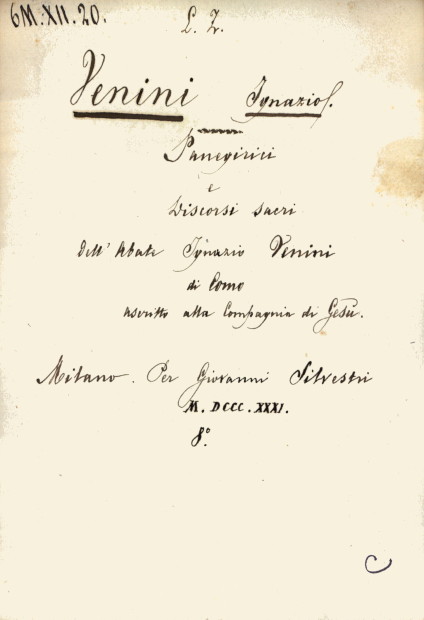 6M.XII.20.
L. Z.
Venini Ignazio S.
Panegirici
e
Discorsi sacri
dell' Abate Ignazio Venini
di Como
ascritto alla Compagnia di Gesù.
Milano. Per Giovanni Silvestri
M. DCCC. XXXI.
8°.
C